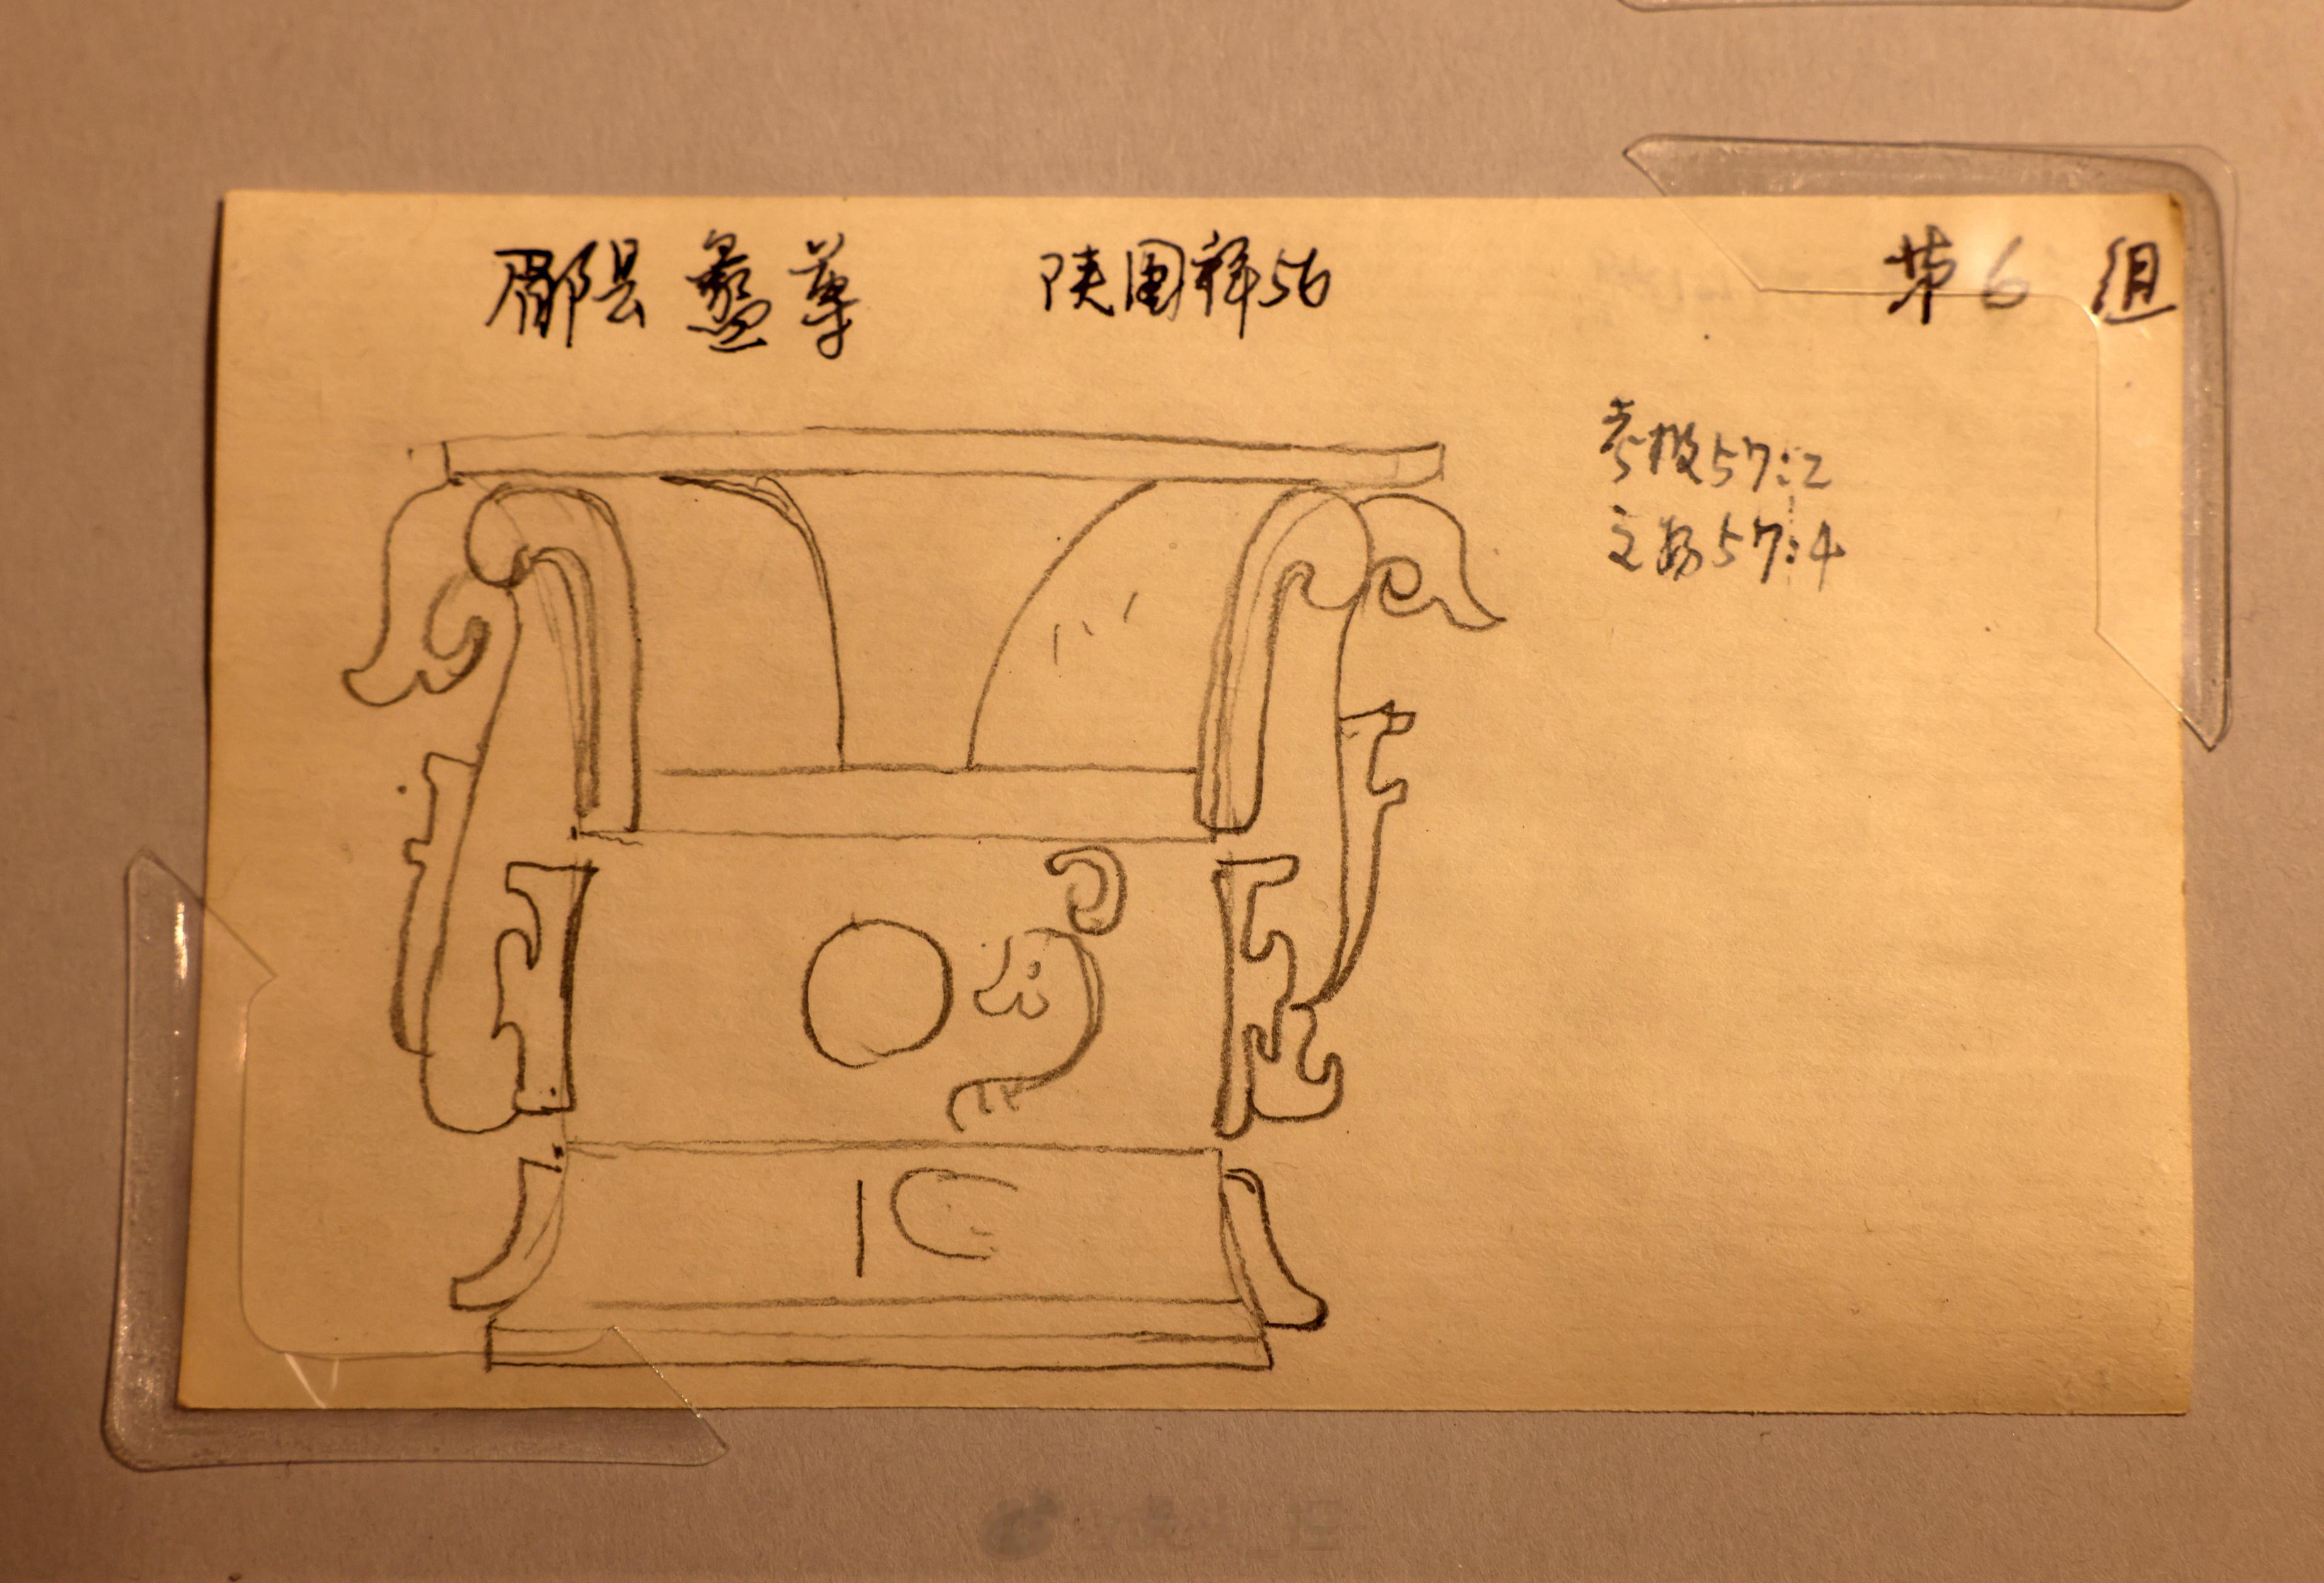 郿县盠尊 陕图释56 第6组
考报57:2
文物57:4